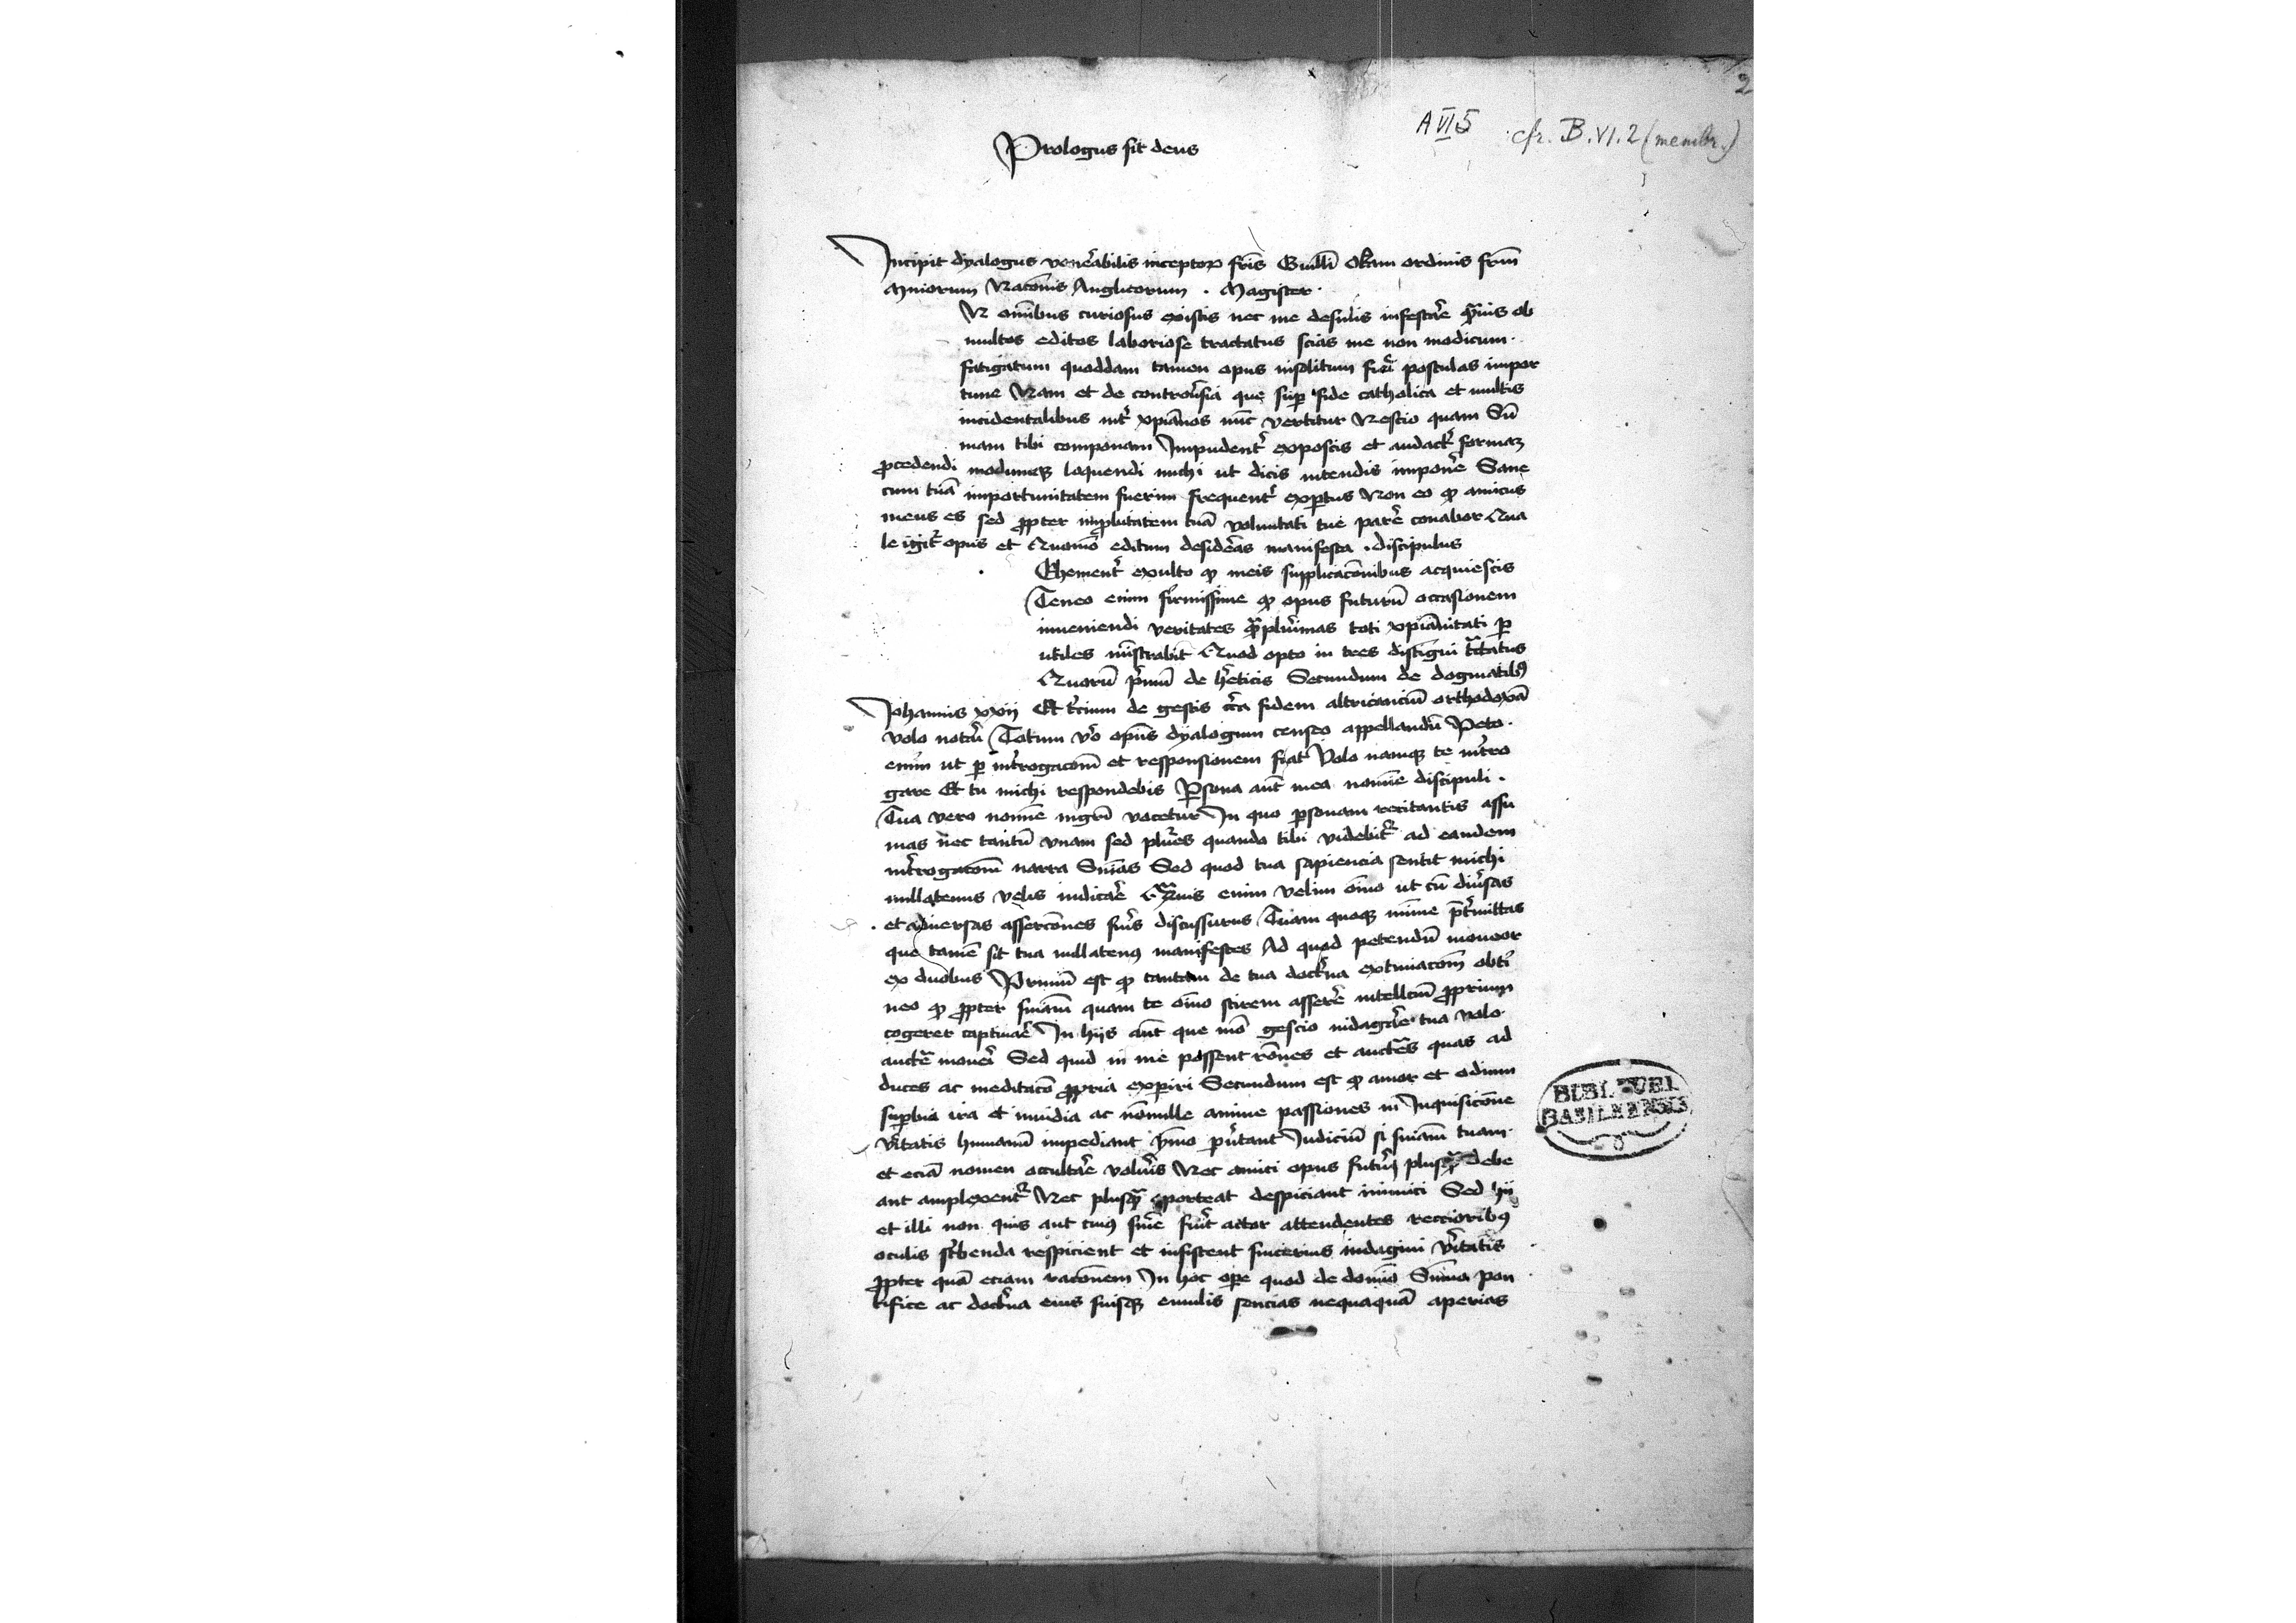 2
A VI 5 cfr. B.VI.2 (membr.)
Prologus sit deus
Incipit dyalogus venẽabilis inceptor fris Guilli Okam ordinis frm̃
Miniorum Nacõnis Anglicorum . Magister .
N oĩnibus curiosus existis nec me desinis infestare qiuis ob
multos editos laboriose tractatus scias me non modicum .
fatigatum quoddam tamen opus insolitum fieri postulas impor
tune Nam et de controũsia que sup fide catholica et multis
incidentalibus int̃ xpiãnos nũc vertitur Nescio quam Sũ
mam tibi componam Impudent̃ exposcis et audact̃ formaz
pcedendi modumqz loquendi michi ut dicis intendis imponẽ Sane
cum tuã importunitatem fuerim frequent̃ exptus Non eo qz amicus
meus es sed ppter impbitatem tuã voluntati tue parẽ conabor Qua
le igit̃ opus et Quomõ editum desidẽas manifesta . discipulus
Ehement̃ exulto qz meis supplicacõnibus acquiescis
Teneo enim firmissime qz opus futurũ occasionem
inueniendi veritates qplurimas toti xpiãnitati p
utiles mĩstrabit Quod opto in tres distĩgui tc̃tatus
Quorũ p̃mũ de hẽticis Secundum de dogmatibꝰ
Johannis xxij Et t̃cium de gestis cc̃a fidem altricãciũ orthodoxã
volo notãri Totum vo opus dyalogum censeo appellandũ Peto .
enim ut p int̃rogacõm et responsionem fiat Volo namqz te int̃ro
gare Et tu michi respondebis Psona aut̃ mea nomĩe discipuli .
Tua vero nomĩe mgrĩ vocetur In quo psonam recitantis assu
mas nec tantũ vnam sed plures quando tibi videbit̃ ad eandem
int̃rogacõm narra Snĩas Sed quod tua sapiencia sentit michi
nullatenus velis indicãe Quis enim velim oĩno ut cũ diũsas
et aduersas assercõnes fuis discussurus Tuam quoqz mĩme pt̃mittas
que tamẽ sit tua nullatenꝰ manifestes Ad quod petendũ moueor
ex duobus Primũ est qz tantam de tua doct̃na extimacõm obti
neo qz ppter snĩam quam te oĩno scirem asserẽ intellc̃m pprium
cogerer captiuãe In hijs aut̃ que mõ gescio indagãre tua nolo
auctẽ mouei Sed quid in me possent rõnes et auctẽs quas ad
duces ac meditacõ ppria expiri Secundum est qz amor et odium
supbia ira et inuidia ac nõnulle anime passiones in Inquisicõne
v̾itatis humanũ impediant ymo pũtant Judiciũ si snĩam tuam
et eciã nomen occultãe voluis Nec amici opus futũ plusqz debe
ant amplexent̃ Nec plusqz oporteat despiciant inimici Sed hij
et illi non quis aut cuiꝰ snĩe fuit actor attendentes reccioribꝰ
oculis sc̃benda respicient et insistent sincerius indagini v̾itatis
ppter quã eciam racõnem In hoc ope quod de domĩo Sũmo pon
tifice ac doct̃na eius suisqz emulis sencias nequaquã aperias
BIBL. UNI.
BASILEENSIS